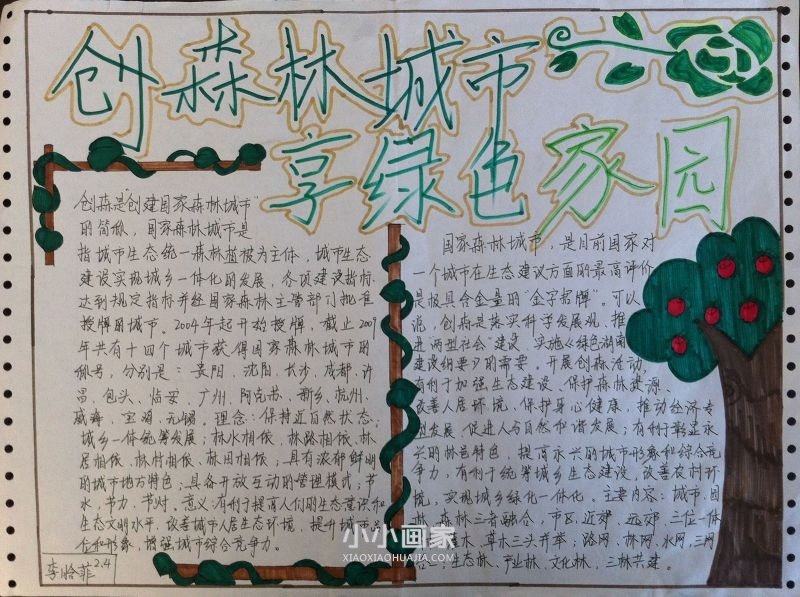 创森林城市
享绿色家园
创森是"创建国家森林城市"
的简称，国家森林城市是
指城市生态统一森林植被为主体，城市生态
建设实现城乡一体化的发展，各项建设指标
达到规定指标并经国家森林主管部门批准
授牌的城市。2004年起开始授牌，截止2009
年共有十四个城市获得国家森林城市的
称号，分别是：贵阳、沈阳、长沙、成都、许
昌、包头、临安、广州、阿克苏、新乡、杭州、
威海、宝鸡、无锡。理念：保持近自然状态；
城乡一体统筹发展；林水相依、林路相依、林
居相依、林村相依、林田相依；具有浓郁鲜明
的城市地方特色；具备开放互动的管理模式；节
水，节力、节财。意义：有利于提高人们的生态意识和
生态文明水平，改善城市人居生态环境，提升城市
和形象，增强城市综合竞争力。
李晗菲 2.4
国家森林城市，是目前国家对
一个城市在生态建设方面的最高评价
是极具含金量的"金字招牌"。可以
说，创森是落实科学发展观、推
进"两型社会"建设、实施《绿色湖南
建设纲要》的需要。开展创森活动，
有利于加强生态建设、保护森林资源、
改善人居环境、保护身心健康，推动经济
发展，促进人与自然和谐发展；有利于彰显永
兴的林邑特色，提高永兴的城市形象和综合竞
争力。有利于统筹城乡生态建设，改善农村环
境，实现城乡绿化一体化。主要内容：城市、园
森林三者融合，市区、近郊、远郊、三位一体
木、草木三头并举，路网、林网、水网、三网
生态林、产业林、文化林、三林共建。
小小画家
XIAOXIAOHUAJIA.COM